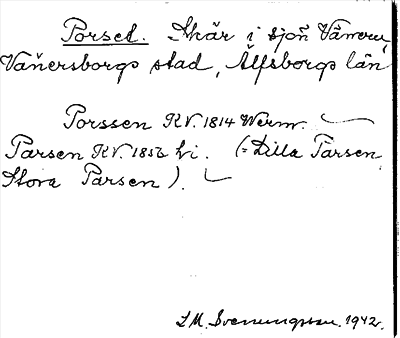 Porset. Skär i sjön Vänern,
Vänersborgs stad, Älfsborgs län
Porssen KV. 1814 Werm.
Parsen KV. 1856 Vi. (= Lilla Parsen,
Stora Parsen).
S.M. Svenungsson. 1942.